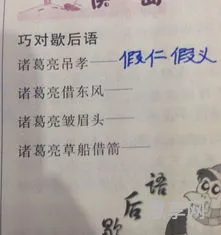 巧对歇后语
诸葛亮吊孝——假仁假义
诸葛亮借东风——
诸葛亮皱眉头——
诸葛亮草船借箭——
语
后
歇